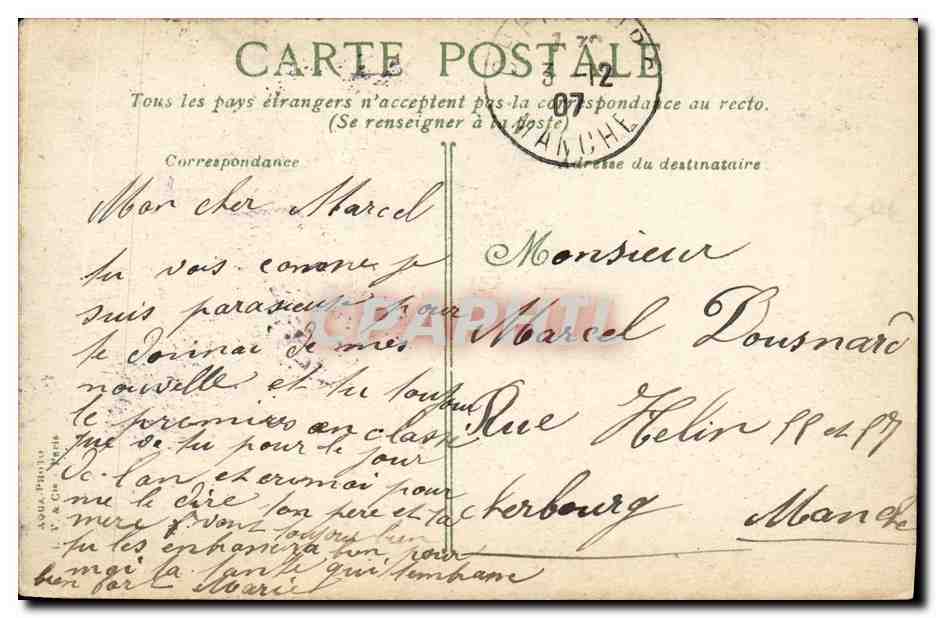 CARTE POSTALE
Tous les pays étrangers n'acceptent pas la correspondance au recto.
(Se renseigner à la poste)
3 -12
07
MANCHE
Correspondance
Adresse du destinataire
Mon cher Marcel
tu vois comme je
suis paraseuse pour
te donnai de mes
nouvelle et tu toujour
le premiers en classe
que de tu pour le jour
de lan et crimoi pour
me le dire ton père et ta
mère vont toujour bien
tu les enbrassera bien pour
moi ta tante qui tembrasse
bien fort Marie
Monsieur
Marcel Dousnard
Rue Helin 55 et 57
Cherbourg
Manche
AQUA-PHOTO
L. V. & Cie - Paris
CPAPHIL